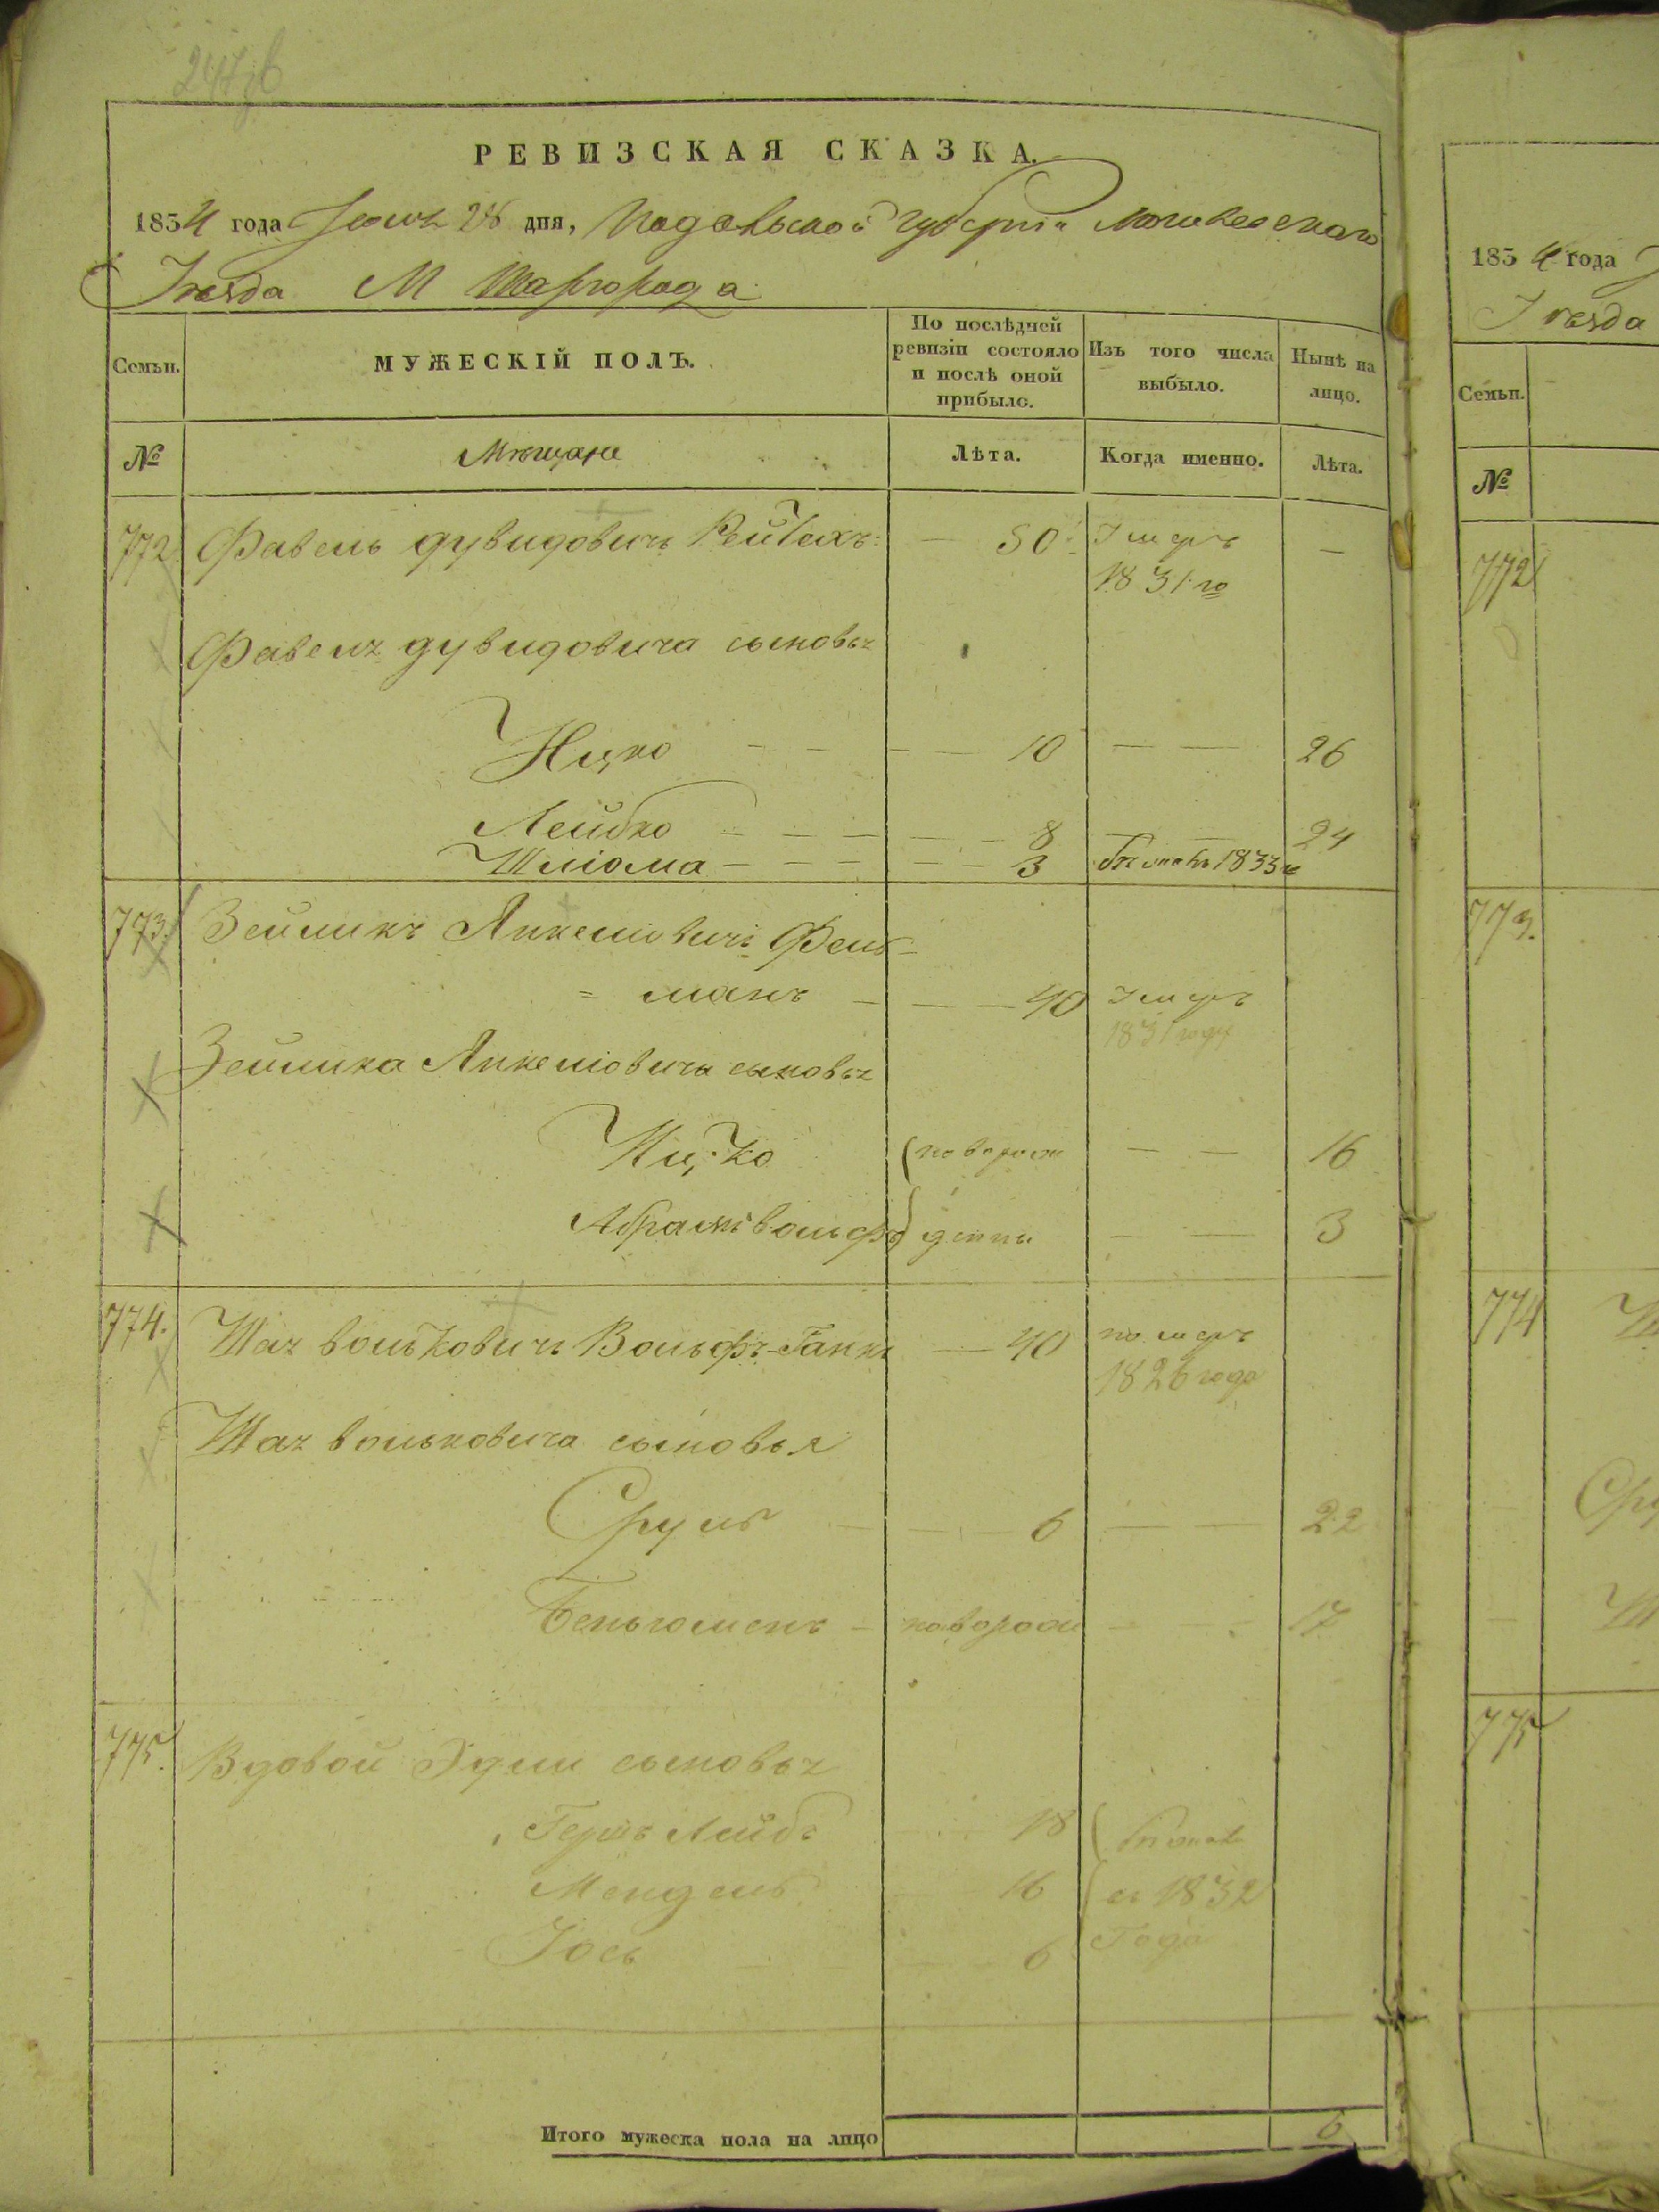 РЕВИЗСКАЯ СКАЗКА.
1834 года Іюля 28 дня, Подольской Губерніи Могилевскаго
Уезда М Шаргорода
Семьи. МУЖЕСКІЙ ПОЛЪ. По послѣдней ревизіи состояло и послѣ оной прибыло. Изъ того числа выбыло. Нынѣ на лицо.
№ Мѣщане Лѣта. Когда именно. Лѣта.
772 Фавель дувидовичъ — 50 Умеръ —
1831 го
Фавеля дувидовича сыновья
Ицко — — — — 10 — — 26
Лейбко — — — — 8 — — 24
Шліома — — — — 3 1833
773. Зейликъ Янкеліовичъ Фель-
= манъ — — 40 Умеръ
1831 году
Зейлика Янкеліовича сыновья
Ицко (новорож — — 16
Абрамъ вольфъ) денны — — 3
774. Шая волковичъ Вольфъ — 40 померъ
1826 года
Шая вольковича сыновья
Сруль — — — 6 — — 22
Беньюменъ — новорож — — 17
775. Вдовой Эдли сыновья
Гершъ Лейбъ — — 18
Мендель — 16 въ 1832
Іось — — — 6 Года
Итого мужеска пола на лицо 6
183 4 года
Уезда
Семьи.
№
772
773.
774
775